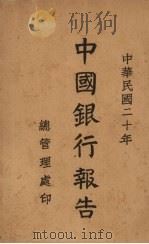 中華民國二十年
中國銀行報告
總管理處印